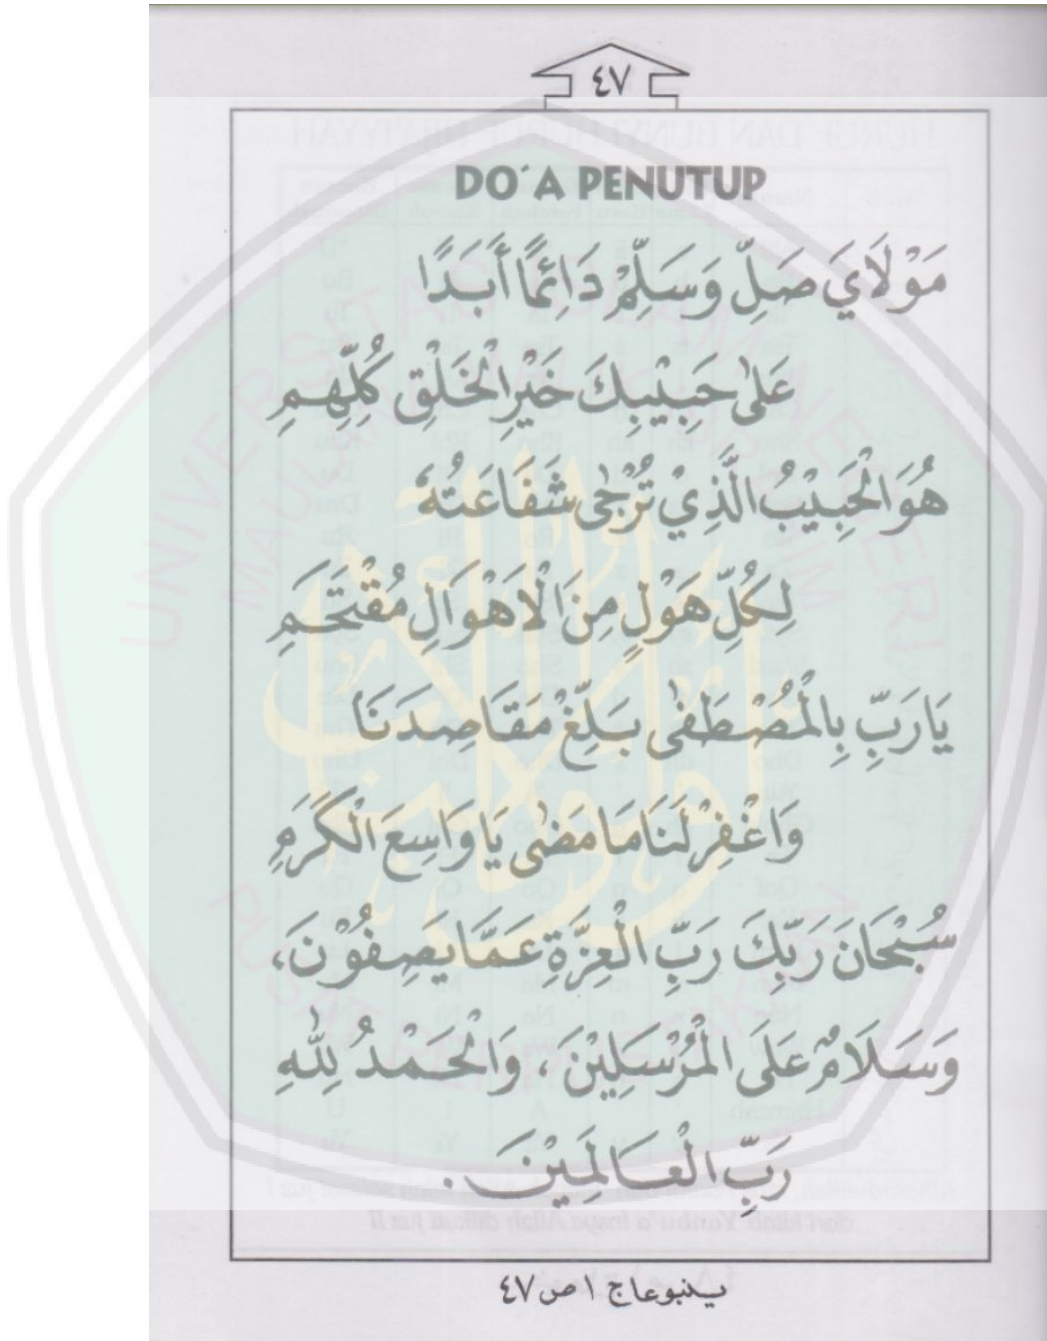 ٤٧
DO´A PENUTUP
مَوْلَايَ صَلِّ وَسَلِّمْ دَائِمًا أَبَدًا
عَلٰى حَبِيْبِكَ خَيْرِ الْخَلْقِ كُلِّهِمِ
هُوَ الْحَبِيْبُ الَّذِيْ تُرْجٰى شَفَاعَتُهُ
لِكُلِّ هَوْلٍ مِنَ الْاَهْوَالِ مُقْتَحَمِ
يَا رَبِّ بِالْمُصْطَفٰى بَلِّغْ مَقَاصِدَنَا
وَاغْفِرْ لَنَا مَا مَضٰى يَا وَاسِعَ الْكَرَمِ
سُبْحَانَ رَبِّكَ رَبِّ الْعِزَّةِ عَمَّا يَصِفُوْنَ،
وَسَلَامٌ عَلَى الْمُرْسَلِيْنَ، وَالْحَمْدُ لِلّٰهِ
رَبِّ الْعَالَمِيْنَ.
ينبوعا ج ١ ص ٤٧